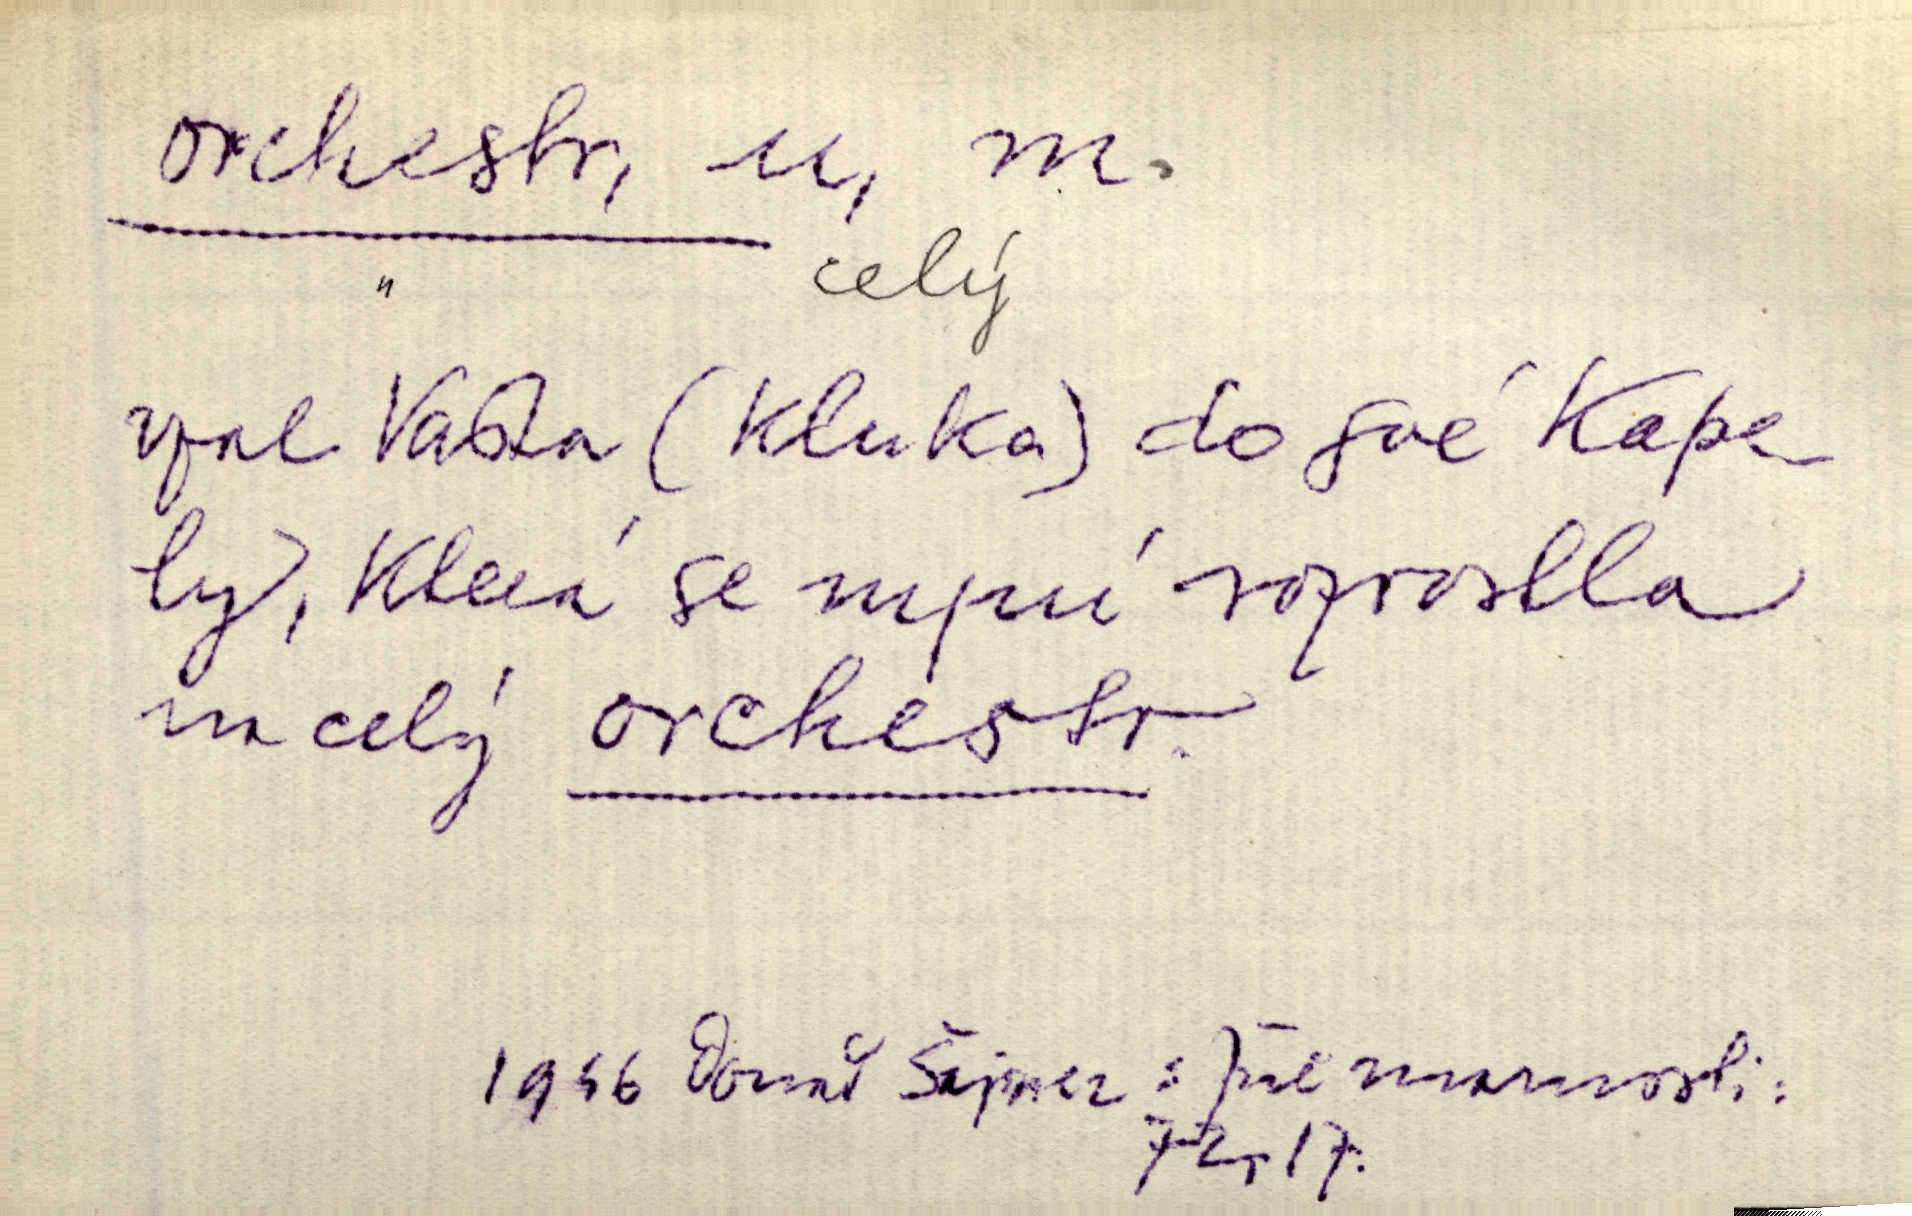 orchestr, u, m.
" celý
vzal Vašta (kluka) do své kape-
ly, která se nyní rozrostla
na celý orchestr.
1956 Donát Šajner: Jiné marnosti:
72, 17.